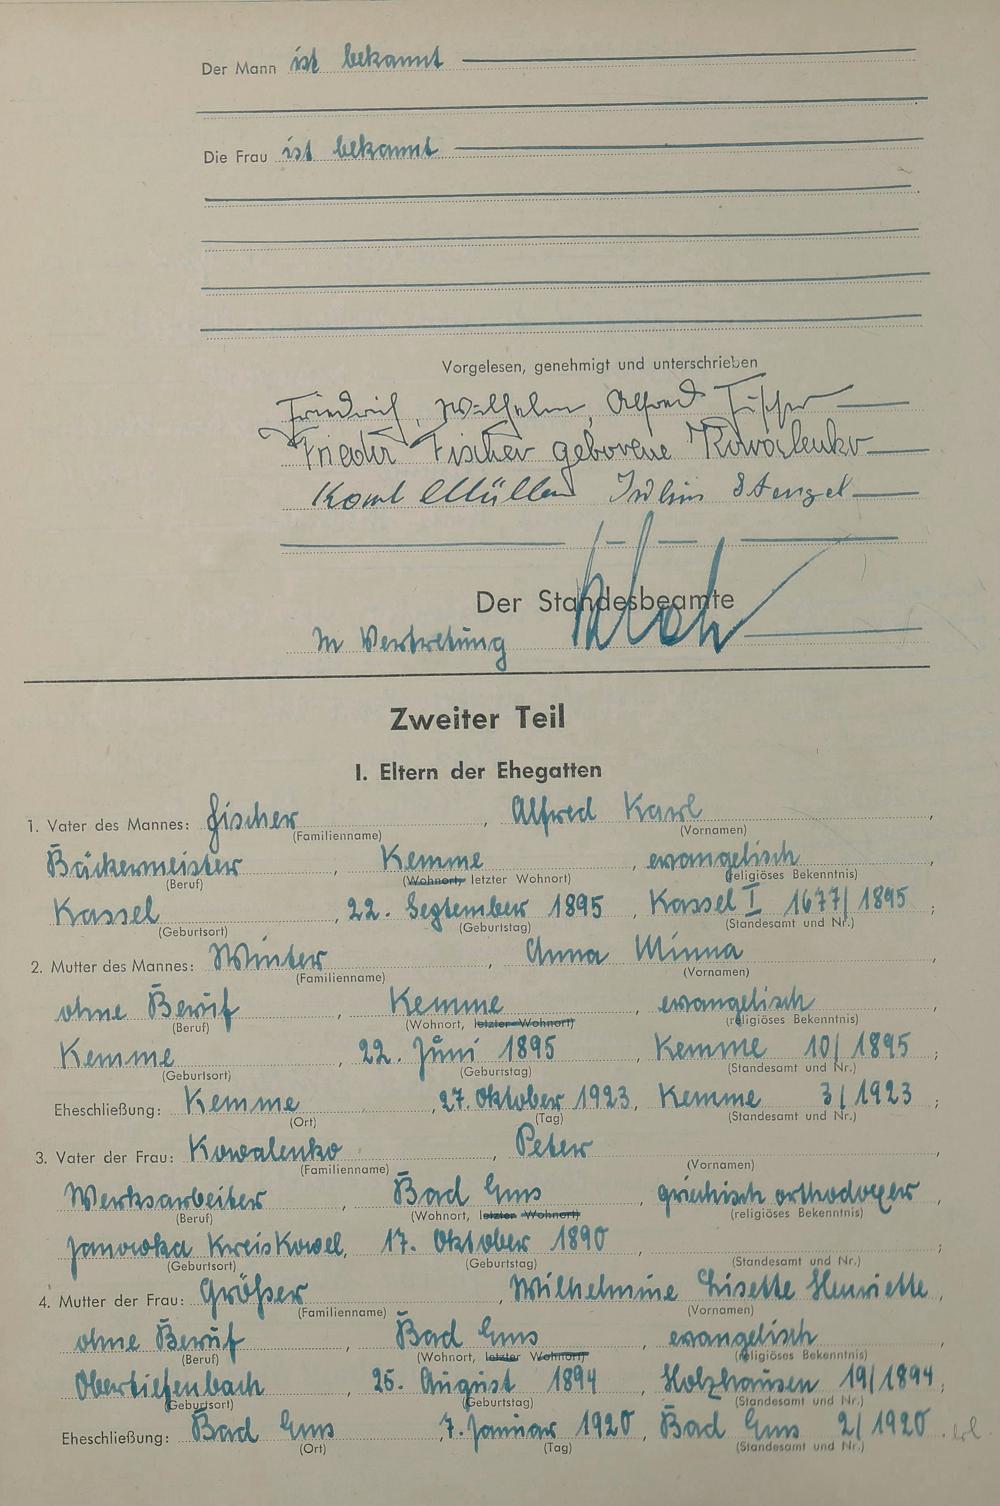 Der Mann ist bekannt
Die Frau ist bekannt
Vorgelesen, genehmigt und unterschrieben
Friedrich, Wilhelm, Alfred Fischer
Frieda Fischer geborene Kowalenko
Karl Müller Julius Stengel
Der Standesbeamte
In Vertretung
Zweiter Teil
I. Eltern der Ehegatten
1. Vater des Mannes: Fischer, Alfred Karl,
(Familienname) (Vornamen)
Bäckermeister, Kemme, evangelisch,
(Beruf) (Wohnort, letzter Wohnort) (religiöses Bekenntnis)
Kassel, 22. September 1895, Kassel I 1677/1895;
(Geburtsort) (Geburtstag) (Standesamt und Nr.)
2. Mutter des Mannes: Winter, Anna Minna,
(Familienname) (Vornamen)
ohne Beruf, Kemme, evangelisch,
(Beruf) (Wohnort, letzter Wohnort) (religiöses Bekenntnis)
Kemme, 22. Juni 1895, Kemme 10/1895;
(Geburtsort) (Geburtstag) (Standesamt und Nr.)
Eheschließung: Kemme, 27. Oktober 1923, Kemme 3/1923;
(Ort) (Tag) (Standesamt und Nr.)
3. Vater der Frau: Kowalenko, Peter,
(Familienname) (Vornamen)
Werksarbeiter, Bad Ems, griechisch orthodoxer,
(Beruf) (Wohnort, letzter Wohnort) (religiöses Bekenntnis)
Janowka Kreis Kowel, 17. Oktober 1890,;
(Geburtsort) (Geburtstag) (Standesamt und Nr.)
4. Mutter der Frau: Größer, Wilhelmine Lisette Henriette,
(Familienname) (Vornamen)
ohne Beruf, Bad Ems, evangelisch,
(Beruf) (Wohnort, letzter Wohnort) (religiöses Bekenntnis)
Obertiefenbach, 25. August 1894, Holzhausen 19/1894;
(Geburtsort) (Geburtstag) (Standesamt und Nr.)
Eheschließung: Bad Ems, 7. Januar 1920, Bad Ems 2/1920.
(Ort) (Tag) (Standesamt und Nr.)